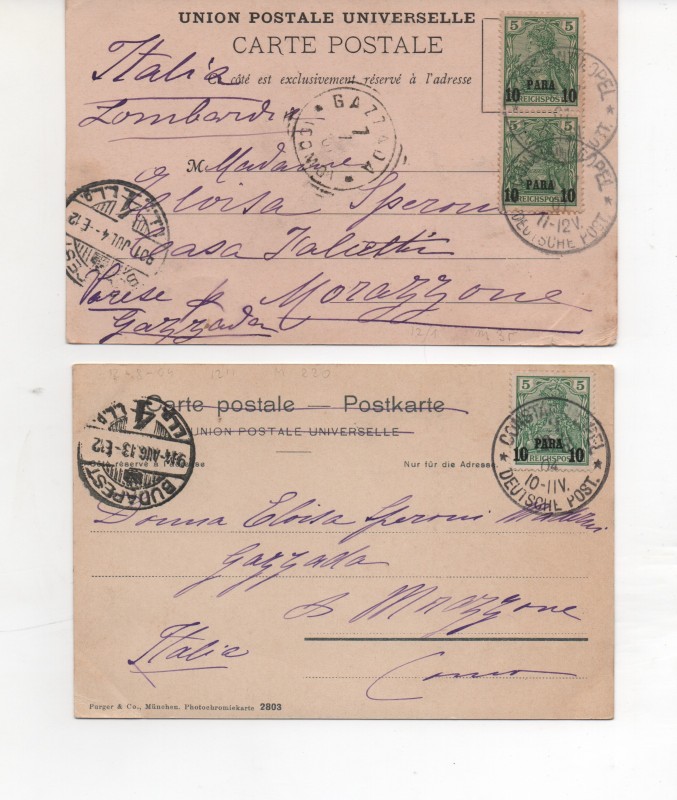 UNION POSTALE UNIVERSELLE
CARTE POSTALE
Ce côté est exclusivement réservé à l'adresse
Italia
Lombardia
GAZZADA
M Madame
Eloisa Speroni
Casa
Varese p Morazzone
Gazzada
5 5
PARA
10 10
REICHSPOST
5 5
PARA
10 10
REICHSPOST
11-12V.
DEUTSCHE POST.
Carte postale — Postkarte
UNION POSTALE UNIVERSELLE
Côté réservé à l'adresse
Nur für die Adresse
5 5
PARA
10 10
REICHSPOST
CONSTANTINOPEL
04
10-11V.
DEUTSCHE POST.
BUDAPEST
914 AUG.13-E12
4
Donna Eloisa Speroni
Gazzada
Morazzone
Italia
Como
Purger & Co., München. Photochromiekarte 2803